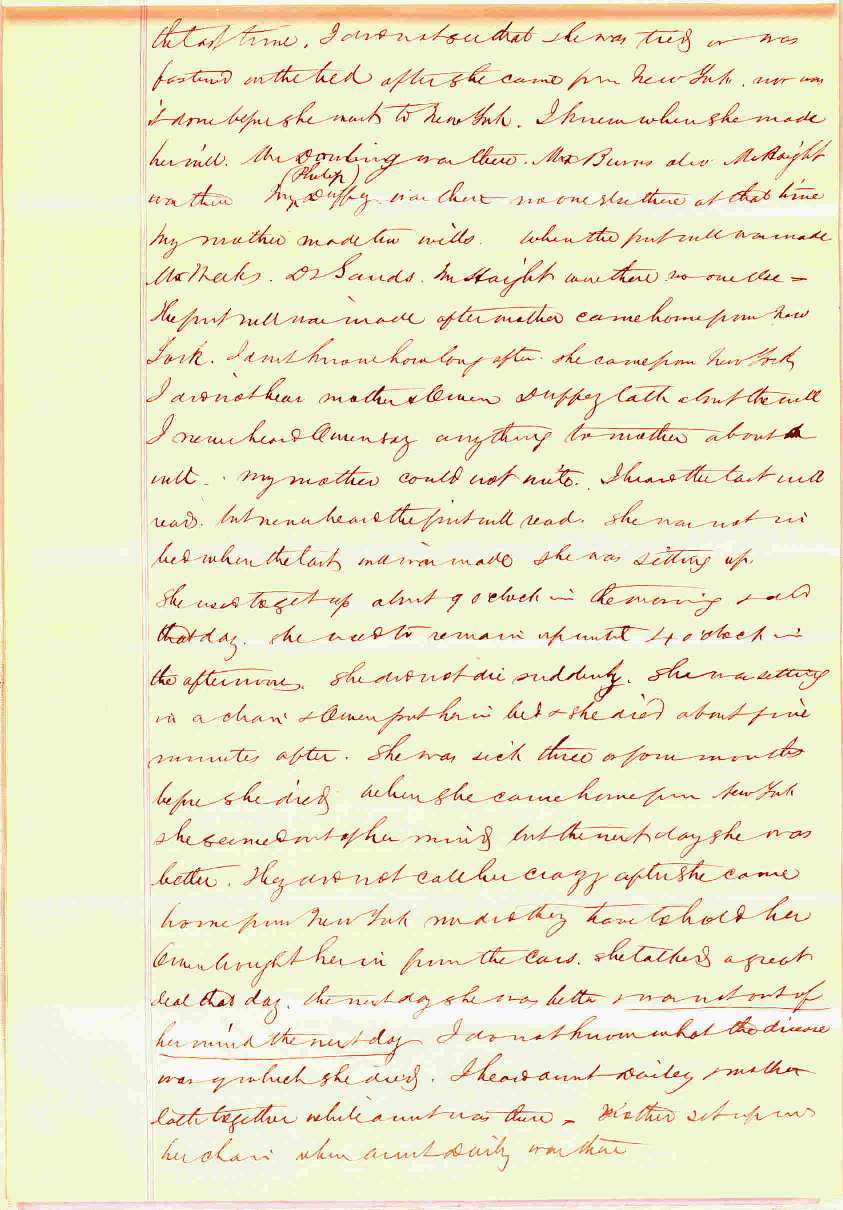 the last time. I did not see that she was tied or was
fastened on the bed after she came from New York. nor was
it done before she went to New York. I knew when she made
her will. Mr Dowling was there. Mr Burns also Mr Haight
was there
(Philip)
Mr Duffey was there no one else there at that time
My mother made two wills. When the first will was made
Mr Meeks. Dr Sands. Mr Haight were there no one else =
The first will was made after mother came home from New
York. I dont know how long after she came from New York
I did not hear mother & Owen Duffey talk about the will
I never heard Owen say anything to mother about a
will. My mother could not write. I heard the last will
read. but never heard the first will read. She was not in
bed when the last will was made she was setting up.
She used to get up about 9 oclock in the morning & did
that day. She used to remain up until 4 o'clock in
the afternoon. She did not die suddenly. She was setting
in a chair & Owen put her in bed & she died about five
minutes after. She was sick three or four months
before she died. When she came home from New York
she seemed out of her mind but the next day she was
better. They did not call her crazy after she came
home from New York nor did they have to hold her
Owen brought her in from the Cars. She talked a great
deal that day. the next day she was better & was not out of
her mind the next day I do not know what the disease
was of which she died. I heard aunt Dailey & mother
talk together while aunt was there - Mother set up in
her chair when aunt Daily was there